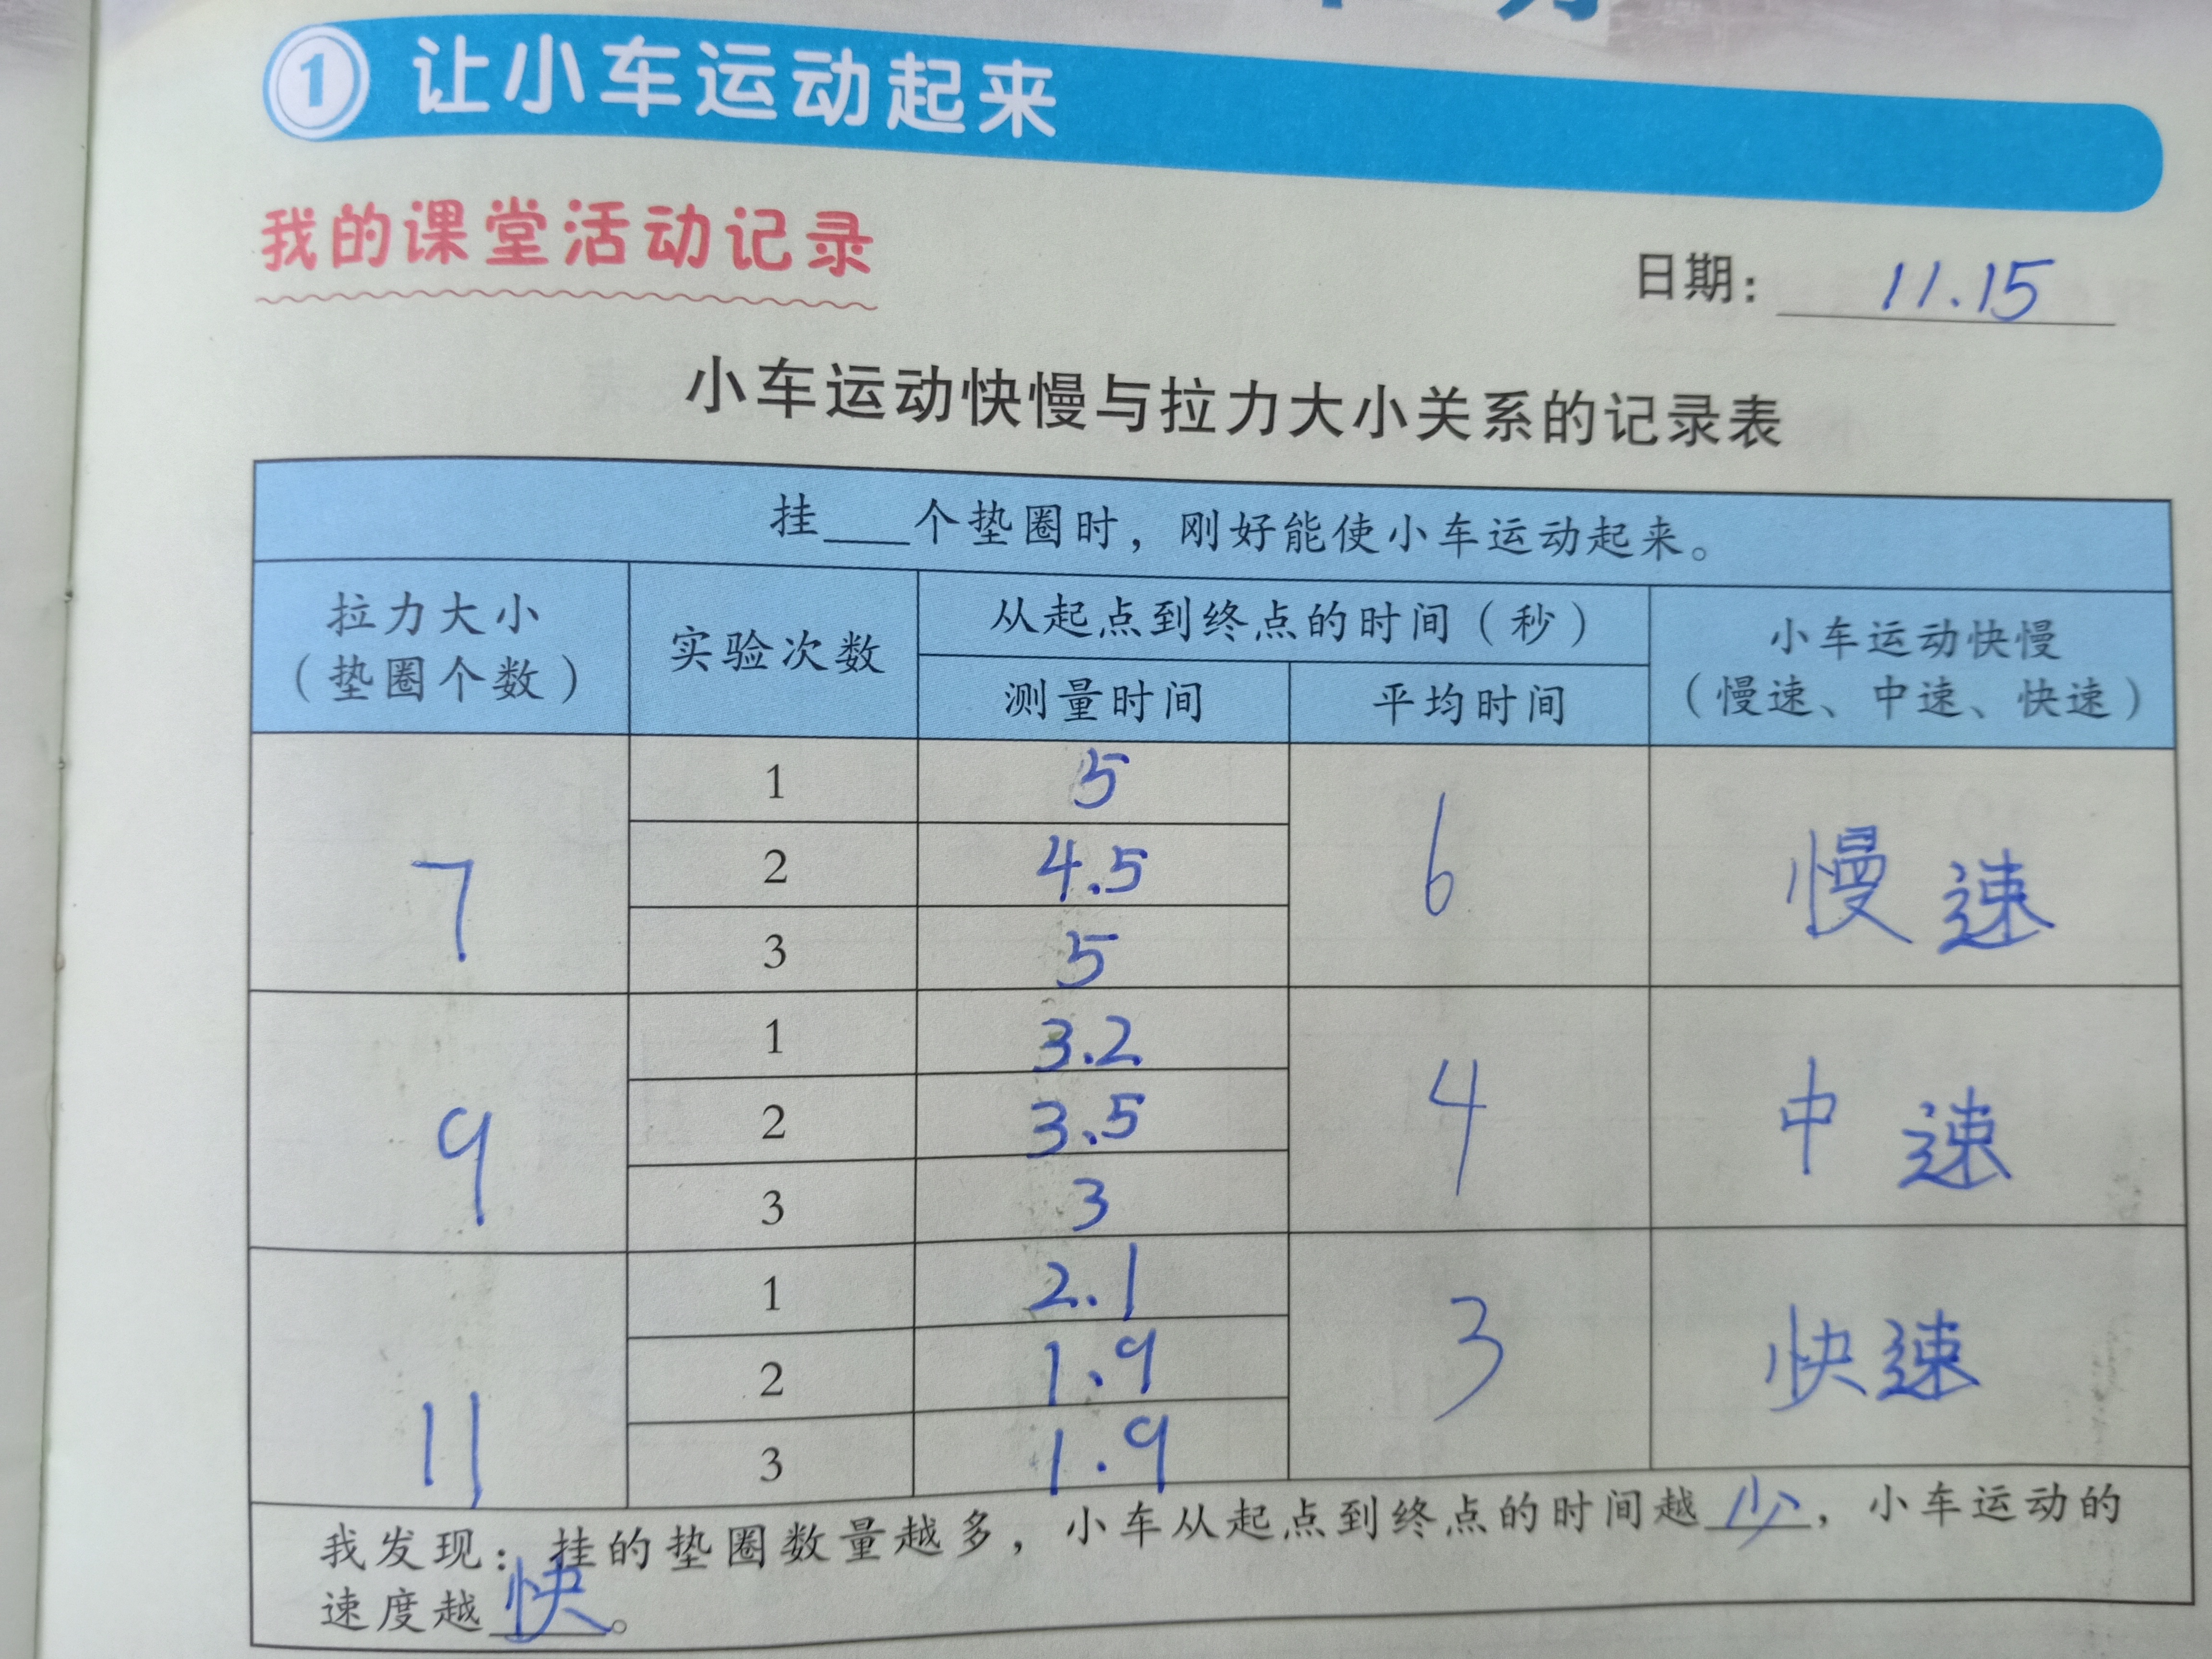 1 让小车运动起来
我的课堂活动记录
日期：11.15
小车运动快慢与拉力大小关系的记录表
挂___个垫圈时，刚好能使小车运动起来。
拉力大小
（垫圈个数）
实验次数
从起点到终点的时间（秒）
测量时间
平均时间
小车运动快慢
（慢速、中速、快速）
7
1 5
2 4.5
3 5
6
慢速
9
1 3.2
2 3.5
3 3
4
中速
11
1 2.1
2 1.9
3 1.9
3
快速
我发现：挂的垫圈数量越多，小车从起点到终点的时间越少，小车运动的
速度越快。